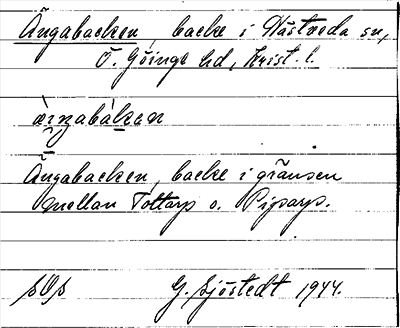 Ängabacken, backe i Nästveda sn,
Ö. Göinge hd, Krist. l.
Ängabacken, backe i gränsen
mellan Tottarp o.
G. Sjöstedt 1944.